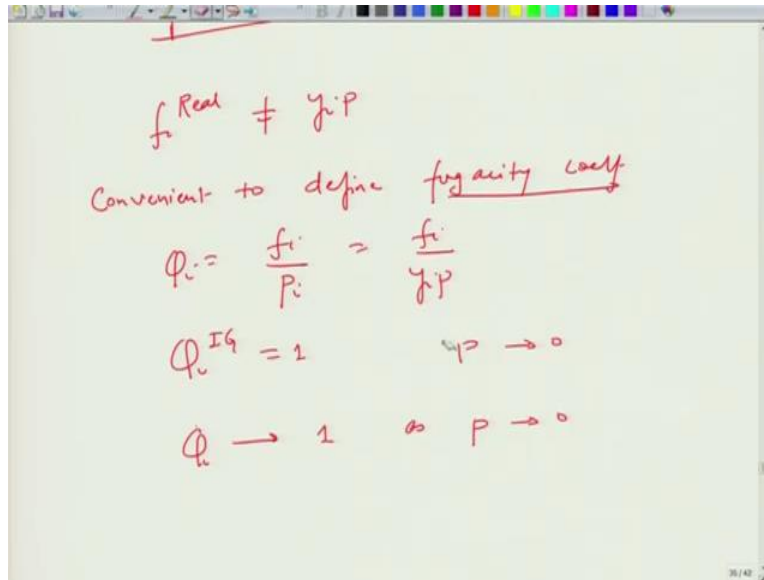 f_i^Real ≠ y_i P
Convenient to define fugacity coeff
φ_i = f_i / P_i = f_i / y_i P
φ_i^IG = 1 P → 0
φ_i → 1 as P → 0
36/42